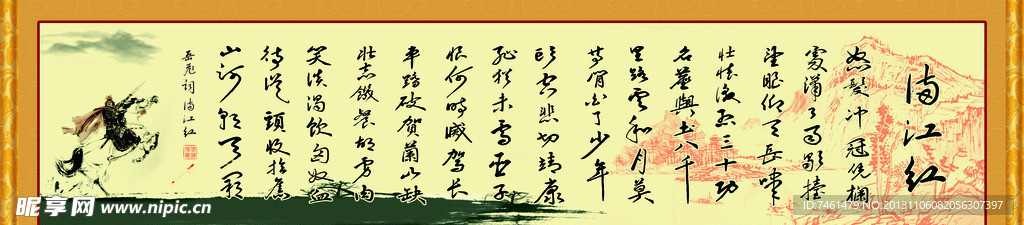 满江红
怒髮冲冠凭欄
處潇々雨歇抬
望眼仰天長啸
壮怀激烈三十功
名塵與土八千
里路雲和月莫
等閒白了少年
頭空悲切靖康
耻犹未雪臣子
恨何時滅驾長
車踏破賀蘭山缺
壮志饑餐胡虏肉
笑谈渴飲匈奴血
待從頭收拾舊
山河朝天闕
岳飛詞满江红
昵享网 www.nipic.cn
ID:7461479 NO:20131106082056307397